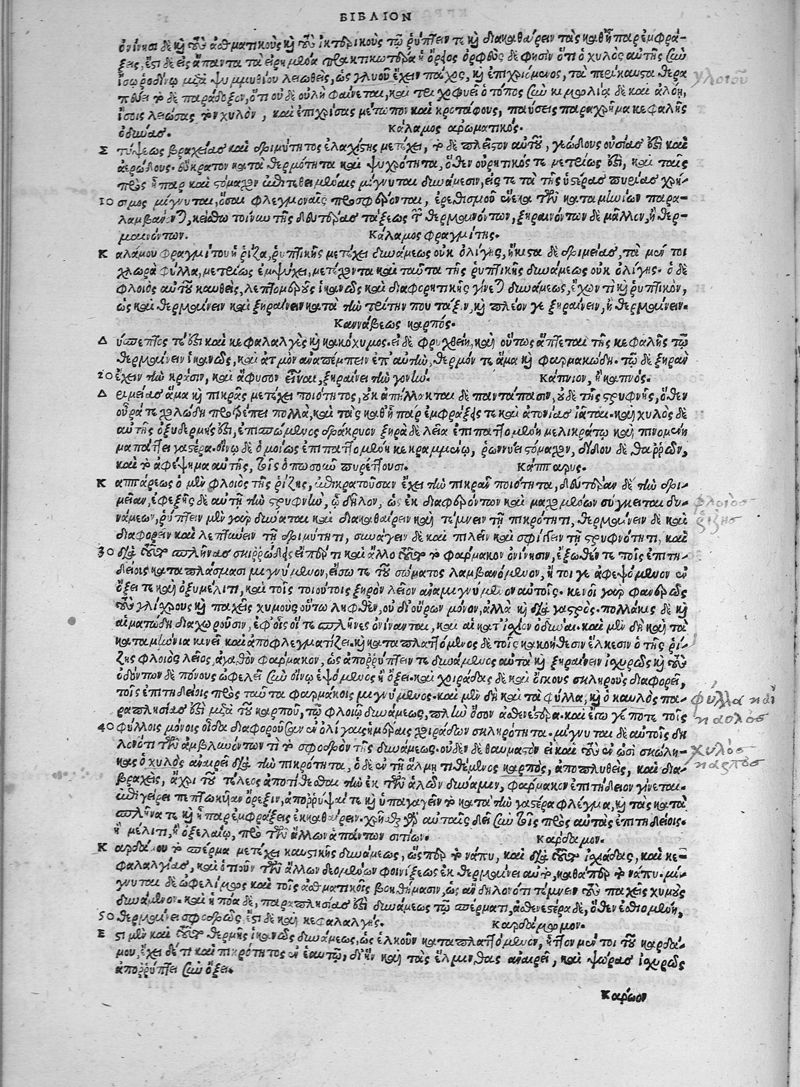 ΒΙΒΛΙΟΝ
ὀνίνησι δὲ καὶ τοὺς ἀσθματικοὺς καὶ τοὺς ἰκτερικοὺς τῷ ῥύπτειν τε καὶ διακαθαίρειν τὰς καθ' ἧπαρ ἐμφρά-
ξεις, ἔτι δὲ εἰς ἅπαντα τὰ εἰρημένα πρακτικωτέρα ἡ ὀρφὸς δέ φησιν ὅτι ὁ χυλὸς αὐτῆς σὺν
ἴσῳ ῥοδίνῳ μετὰ ψιμμυθίου λειωθεὶς, ὡς γλοιοῦ ἔχειν πάχος, καὶ ἐπιχριόμενος, τὰ περίκαυστα θερα
πεύει τὸ δὲ παράδοξον, ὅτι οὐδὲ οὐλὴ φαίνεται, καὶ τετριχοφυεῖ ὁ τόπος σὺν κιμωλίᾳ δὲ καὶ ἀλόῃ,
ἴσοις λειώσας τὸν χυλὸν, καὶ ἐπιχρίσας μέτωπον καὶ κροτάφους, παύσεις παραχρῆμα κεφαλῆς
ὀδύνας. Κάλαμος ἀρωματικός.
Σ τύψεως βραχείας καὶ δριμύτητος ἐλαχίστης μετέχει, τὸ δὲ πλεῖστον αὐτοῦ, γεώδους οὐσίας ἐστὶ καὶ
ἀερώδους. εὔκρατον κατὰ θερμότητα καὶ ψυχρότητα, ὅθεν οὐρητικός τε μετρίως ἐστὶ, καὶ ταῖς
πρὸς ἧπαρ καὶ στόμαχον ἐπιτιθεμέναις μίγνυται δυνάμεσιν, εἴς τε τὰ τῆς ὑστέρας πυρίας χρή-
10 σιμος μίγνυται, ὅσαι φλεγμοναῖς προσφέρονται, ἐρεθισμοῦ ἕνεκα τῶν καταμηνίων παρα-
λαμβάνεται, κείσθω τοίνυν τῆς δευτέρας τάξεως τῶν θερμαινόντων, ξηραινόντων δὲ μᾶλλον, ἢ θερ-
μαινόντων. Κάλαμος φραγμίτης.
Κ αλάμου φραγμίτου ἡ ῥίζα, ῥυπτικῆς μετέχει δυνάμεως οὐκ ὀλίγης, ἥκιστα δὲ δριμείας, τὰ μέν τοι
χλωρὰ φύλλα, μετρίως ἐμψύχει, μετέχοντα καὶ ταῦτα τῆς ῥυπτικῆς δυνάμεως οὐκ ὀλίγης. ὁ δὲ
φλοιὸς αὐτοῦ καυθεὶς, λεπτομεροῦς ἱκανῶς καὶ διαφορητικῆς γίνεται δυνάμεως, ἔχων τι καὶ ῥυπτικὸν,
ὡς καὶ θερμαίνειν καὶ ξηραίνειν κατὰ τὴν τρίτην που τάξιν, καὶ πλέον γε ξηραίνειν, ἢ θερμαίνειν.
Καννάβεως καρπός.
Δ ύσπεπτός τέ ἐστι καὶ κεφαλαλγὴς καὶ κακόχυμος. εἰ δὲ φρυχθείη, καὶ οὕτως ἅπτεται τῆς κεφαλῆς τῷ
θερμαίνειν ἱκανῶς, καὶ ἀτμὸν ἀναπέμπειν ἐπ' αὐτὴν, θερμόν τε ἅμα καὶ φαρμακώδη. τῷ δὲ ξηρὰν
20 ἔχειν τὴν κρᾶσιν, καὶ ἄφυσον εἶναι, ξηραίνει τὴν γονήν. Κάπνιον, ἢ καπνός.
Δ ριμείας ἅμα καὶ πικρᾶς μετέχει ποιότητος, οὐκ ἀπήλλακται δὲ παντάπασιν, οὐδὲ τῆς στρυφνῆς, ὅθεν
οὖρά τε χολώδη προτρέπει πολλὰ, καὶ τὰς καθ' ἧπαρ ἐμφράξεις τε καὶ ἀτονίας ἰᾶται. καὶ χυλὸς δὲ
αὐτῆς ὀξυδερκής ἐστι, ἐπισπώμενος δάκρυον ξηρὰ δὲ λεῖα ἐπιπαττομένη μελικράτῳ καὶ πινομένη
μαλάττει γαστέρα. οἴνῳ δὲ ὁμοίως ἐπιπαττομένη κεκραμμένῳ, ῥώννυσι στόμαχον, δίδου δὲ θαρρῶν,
καὶ τὸ ἀφέψημα αὐτῆς, τοῖς ὁπωσοῦν πυρέττουσι. Κάππαρις.
Κ αππάρεως ὁ μὲν φλοιὸς τῆς ῥίζης, ἐπικρατοῦσαν ἔχει τὴν πικρὰν ποιότητα, δευτέραν δὲ τὴν δρι-
μεῖαν, ἐφεξῆς δὲ αὐτῇ τὴν στρυφνὴν, ᾧ δῆλον, ὡς ἐκ διαφερόντων καὶ μαχομένων σύγκειται δυ-
νάμεων, ῥύπτειν μὲν γὰρ δύναται καὶ διακαθαίρειν καὶ τέμνειν τῇ πικρότητι, θερμαίνειν δὲ καὶ
διαφορεῖν καὶ λεπτύνειν τῇ δριμύτητι, συνάγειν δὲ καὶ πιλεῖν καὶ σφίγγειν τῇ στρυφνότητι, καὶ
30 διὰ τοῦτο σπλῆνας σκιρρώδεις εἴπερ τι καὶ ἄλλο τοῦτο τὸ φάρμακον ὀνίνησιν, ἔξωθέν τε τοῖς ἐπιτη-
δείοις καταπλάσμασι μιγνύμενον, εἴσω τε τοῦ σώματος λαμβανόμενον, ἤτοι γε ἀφεψόμενον ἐν
ὄξει τε καὶ ὀξυμέλιτι, καὶ τοῖς τοιούτοις ξηρὸν λεῖον ἀναμιγνύμενον αὐτοῖς. κενοῖ γὰρ φανερῶς
τοὺς γλίχρους καὶ παχεῖς χυμοὺς οὕτω ληφθὲν, οὐ δι' οὔρων μόνον, ἀλλὰ καὶ διὰ γαστρός. πολλάκις δὲ καὶ
αἱματώδη διαχωροῦσιν, ἐφ' οἷς οἵ τε σπλῆνες ὀνίνανται, καὶ αἱ κατ' ἰσχίον ὀδύναι. καὶ μὲν δὴ καὶ τὰ
καταμήνια κινεῖ καὶ ἀποφλεγματίζει. καὶ καταπλαττόμενος δὲ τοῖς κακοήθεσιν ἕλκεσιν ὁ τῆς ῥί-
ζης φλοιὸς λεῖος, ἀγαθὸν φάρμακον, ὡς ἀπορρύπτειν τε δυνάμενος αὐτὰ καὶ ξηραίνειν ἰσχυρῶς καὶ τοὺς
ὀδόντων δὲ πόνους ὠφελεῖ σὺν οἴνῳ ἑψόμενος ἢ ὄξει. καὶ χοιράδας δὲ καὶ ὄγκους σκληροὺς διαφορεῖ,
τοῖς ἐπιτηδείοις πρὸς ταῦτα φαρμάκοις μιγνύμενος. καὶ μὲν δὴ καὶ τὰ φύλλα, καὶ ὁ καυλὸς πα-
ραπλησίας ἐστὶ μετὰ τοῦ καρποῦ, τῷ φλοιῷ δυνάμεως, πλὴν ὅσον ἀσθενεστέρα. καὶ ἔγωγέ ποτε τοῖς
40 φύλλοις μόνοις οἶδα διαφορούσαν ἐν ὀλίγαις ἡμέραις χοιράδων σκληρότητα. μίγνυται δὲ αὐτοῖς δη
λονότι τῶν ἀμβλυνόντων τι τὸ σφοδρὸν τῆς δυνάμεως. οὐδὲν δὲ θαυμαστὸν εἰ καὶ τοὺς ἐν ὠσὶ σκώλη-
κας ὁ χυλὸς ἀναιρεῖ διὰ τὴν πικρότητα, ὁ δὲ ἐν τῇ ἅλμῃ τιθέμενος καρπὸς, ἀποπλυθεὶς, καὶ δια-
βραχεὶς, ἄχρι τοῦ τελέως ἀποτίθεσθαι τὴν ἐκ τῶν ἁλῶν δύναμιν, φάρμακον ἐπιτήδειον γίνεται.
ἐπεγείρει πεπτωκυῖαν ὄρεξιν, ἀπορρύψαι τε καὶ ὑπαγαγεῖν τὸ κατὰ τὴν γαστέρα φλέγμα, καὶ τὰς κατὰ
σπλῆνά τε καὶ ἧπαρ ἐμφράξεις ἐκκαθαίρειν. χρῆσθαι γὰρ αὐταῖς δεῖ σὺν τοῖς πρὸς αὐταῖς ἐπιτηδείοις.
ἢ μέλιτι, ἢ ὀξελαίῳ, πρὸ τῶν ἄλλων ἁπάντων σιτίων. Κάρδαμον.
Κ αρδάμου τὸ σπέρμα μετέχει καυστικῆς δυνάμεως, ὥσπερ τὸ νάπυ, καὶ διὰ τοῦτο ἰσχιάδας, καὶ κε-
φαλαλγίας, καὶ ὁτιοῦν τῶν ἄλλων δεομένων φοινίξεως ἐκθερμαίνει αὐτῷ, καθάπερ τὸ νάπυ. μί-
γνυται δὲ ὠφελίμως καὶ τοῖς ἀσθματικοῖς βοηθήμασιν, ὡς ἂν δηλονότι τέμνειν τοὺς παχεῖς χυμοὺς
δυνάμενον. καὶ ἡ πόα δὲ, παραπλησίας ἐστὶ δυνάμεως τῷ σπέρματι, ἀσθενεστέρα δὲ, ὅθεν ἐσθιομένη,
50 θερμαίνει σφοδρῶς, ἔτι δὲ καὶ κεφαλαλγής. Καρδάμωμον.
Ε στι μὲν καὶ τοῦτο θερμῆς ἱκανῶς δυνάμεως, ὡς ἑλκοῦν καταπλαττόμενον, ἧττον μέντοι τοῦ καρδά-
μου, ἔχει δέ τι καὶ πικρότητος ἐν ἑαυτῷ, δι' ἣν καὶ τὰς ἕλμινθας ἀναιρεῖ, καὶ ψώρας ἰσχυρῶς
ἀπορρύπτει σὺν ὄξει.
Καρύων
γλοιοῦ
φλοιὸς
ῥίζης
φύλλα καὶ
καυλὸς
χυλὸς
καρπὸς